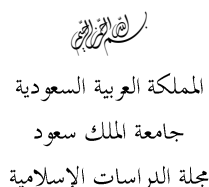 بسم الله الرحمن الرحيم
المملكة العربية السعودية
جامعة الملك سعود
مجلة الدراسات الإسلامية